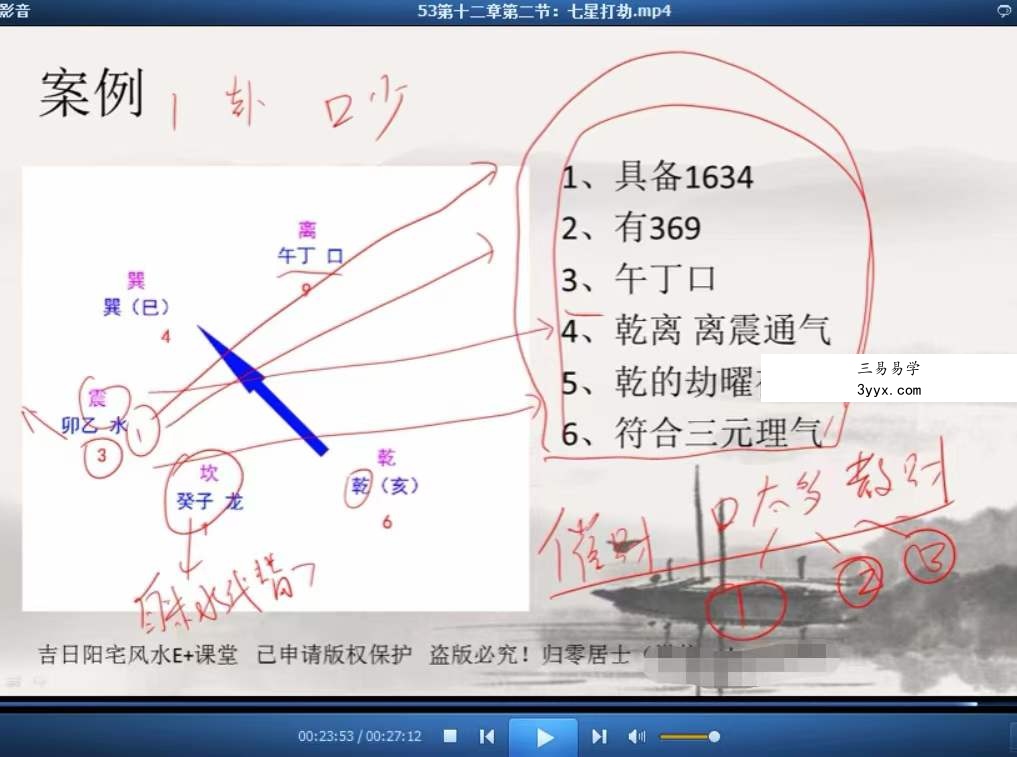 影音
53第十二章第二节：七星打劫.mp4
案例
1 卦 口少
1、具备1634
2、有369
3、午丁口
4、乾离 离震通气
5、乾的劫曜
6、符合三元理气
三易易学
3yyx.com
离
午丁 口
9
巽
巽（巳）
4
震
卯乙 水
1
3
坎
癸子 龙
1
乾
乾（亥）
6
催财 口太多 散财
1 2 3
自来水代替
吉日阳宅风水E+课堂 已申请版权保护 盗版必究！归零居士（
00:23:53 / 00:27:12